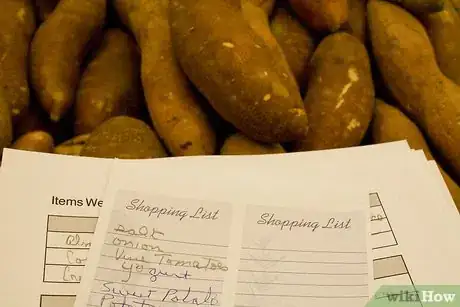 Items We
Shopping List
Shopping List
salt
onion
Vine Tomatoes
Yogurt
Sweet Potato
Potato
wikiHow